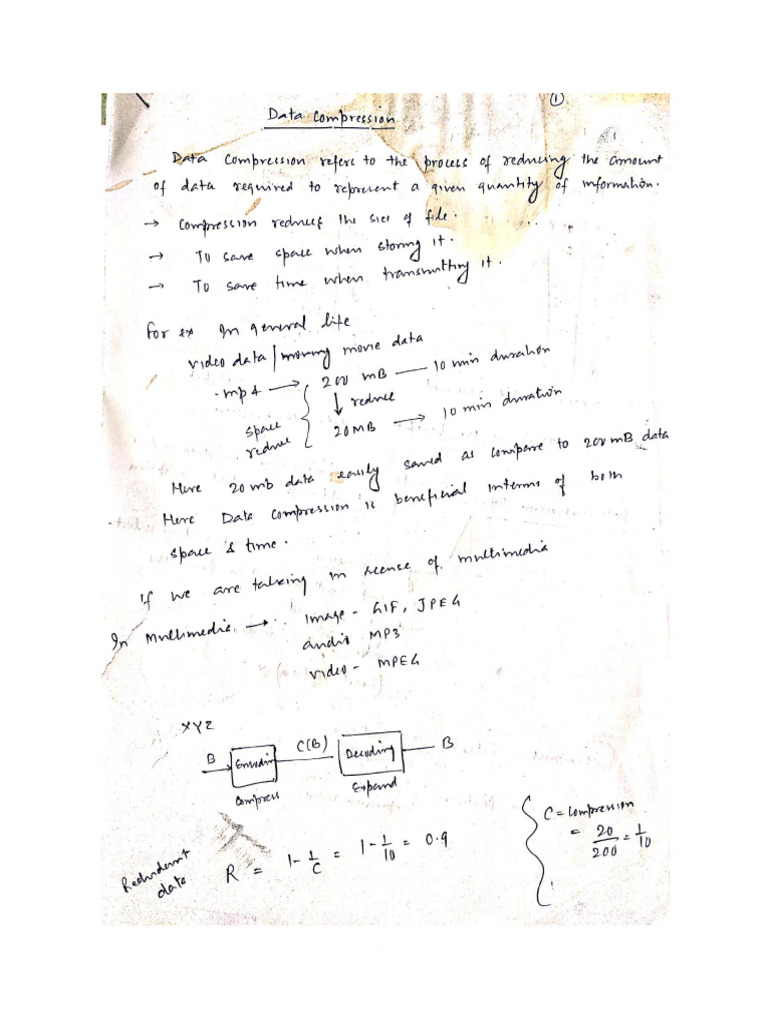 ①
Data Compression
Data Compression refers to the process of reducing the amount
of data required to represent a given quantity of information.
→ Compression reduces the size of file.
→ To save space when storing it.
→ To save time when transmitting it.
For ex In general life
video data / moving movie data
.mp4 → 200 MB — 10 min duration
↓ reduce
space reduce
20MB → 10 min duration
Here 20 mb data easily saved as compare to 200 mB data
Here Data Compression is beneficial interms of both
space & time.
If we are talking in scense of multimedia
In Multimedia → Image - GIF, JPEG
audio MP3
video - MPEG
XYZ
B → Encoding C(B) Decoding — B
Compress Expand
C = Compression
= 20/200 = 1/10
Redundant data R = 1 - 1/C = 1 - 1/10 = 0.9